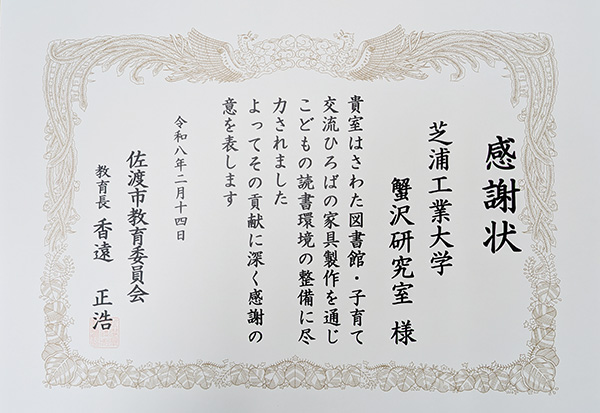 感謝状
芝浦工業大学
蟹沢研究室 様
貴室はさわた図書館・子育て
交流ひろばの家具製作を通じ
こどもの読書環境の整備に尽
力されました
よってその貢献に深く感謝の
意を表します
令和八年二月十四日
佐渡市教育委員会
教育長 香遠 正浩